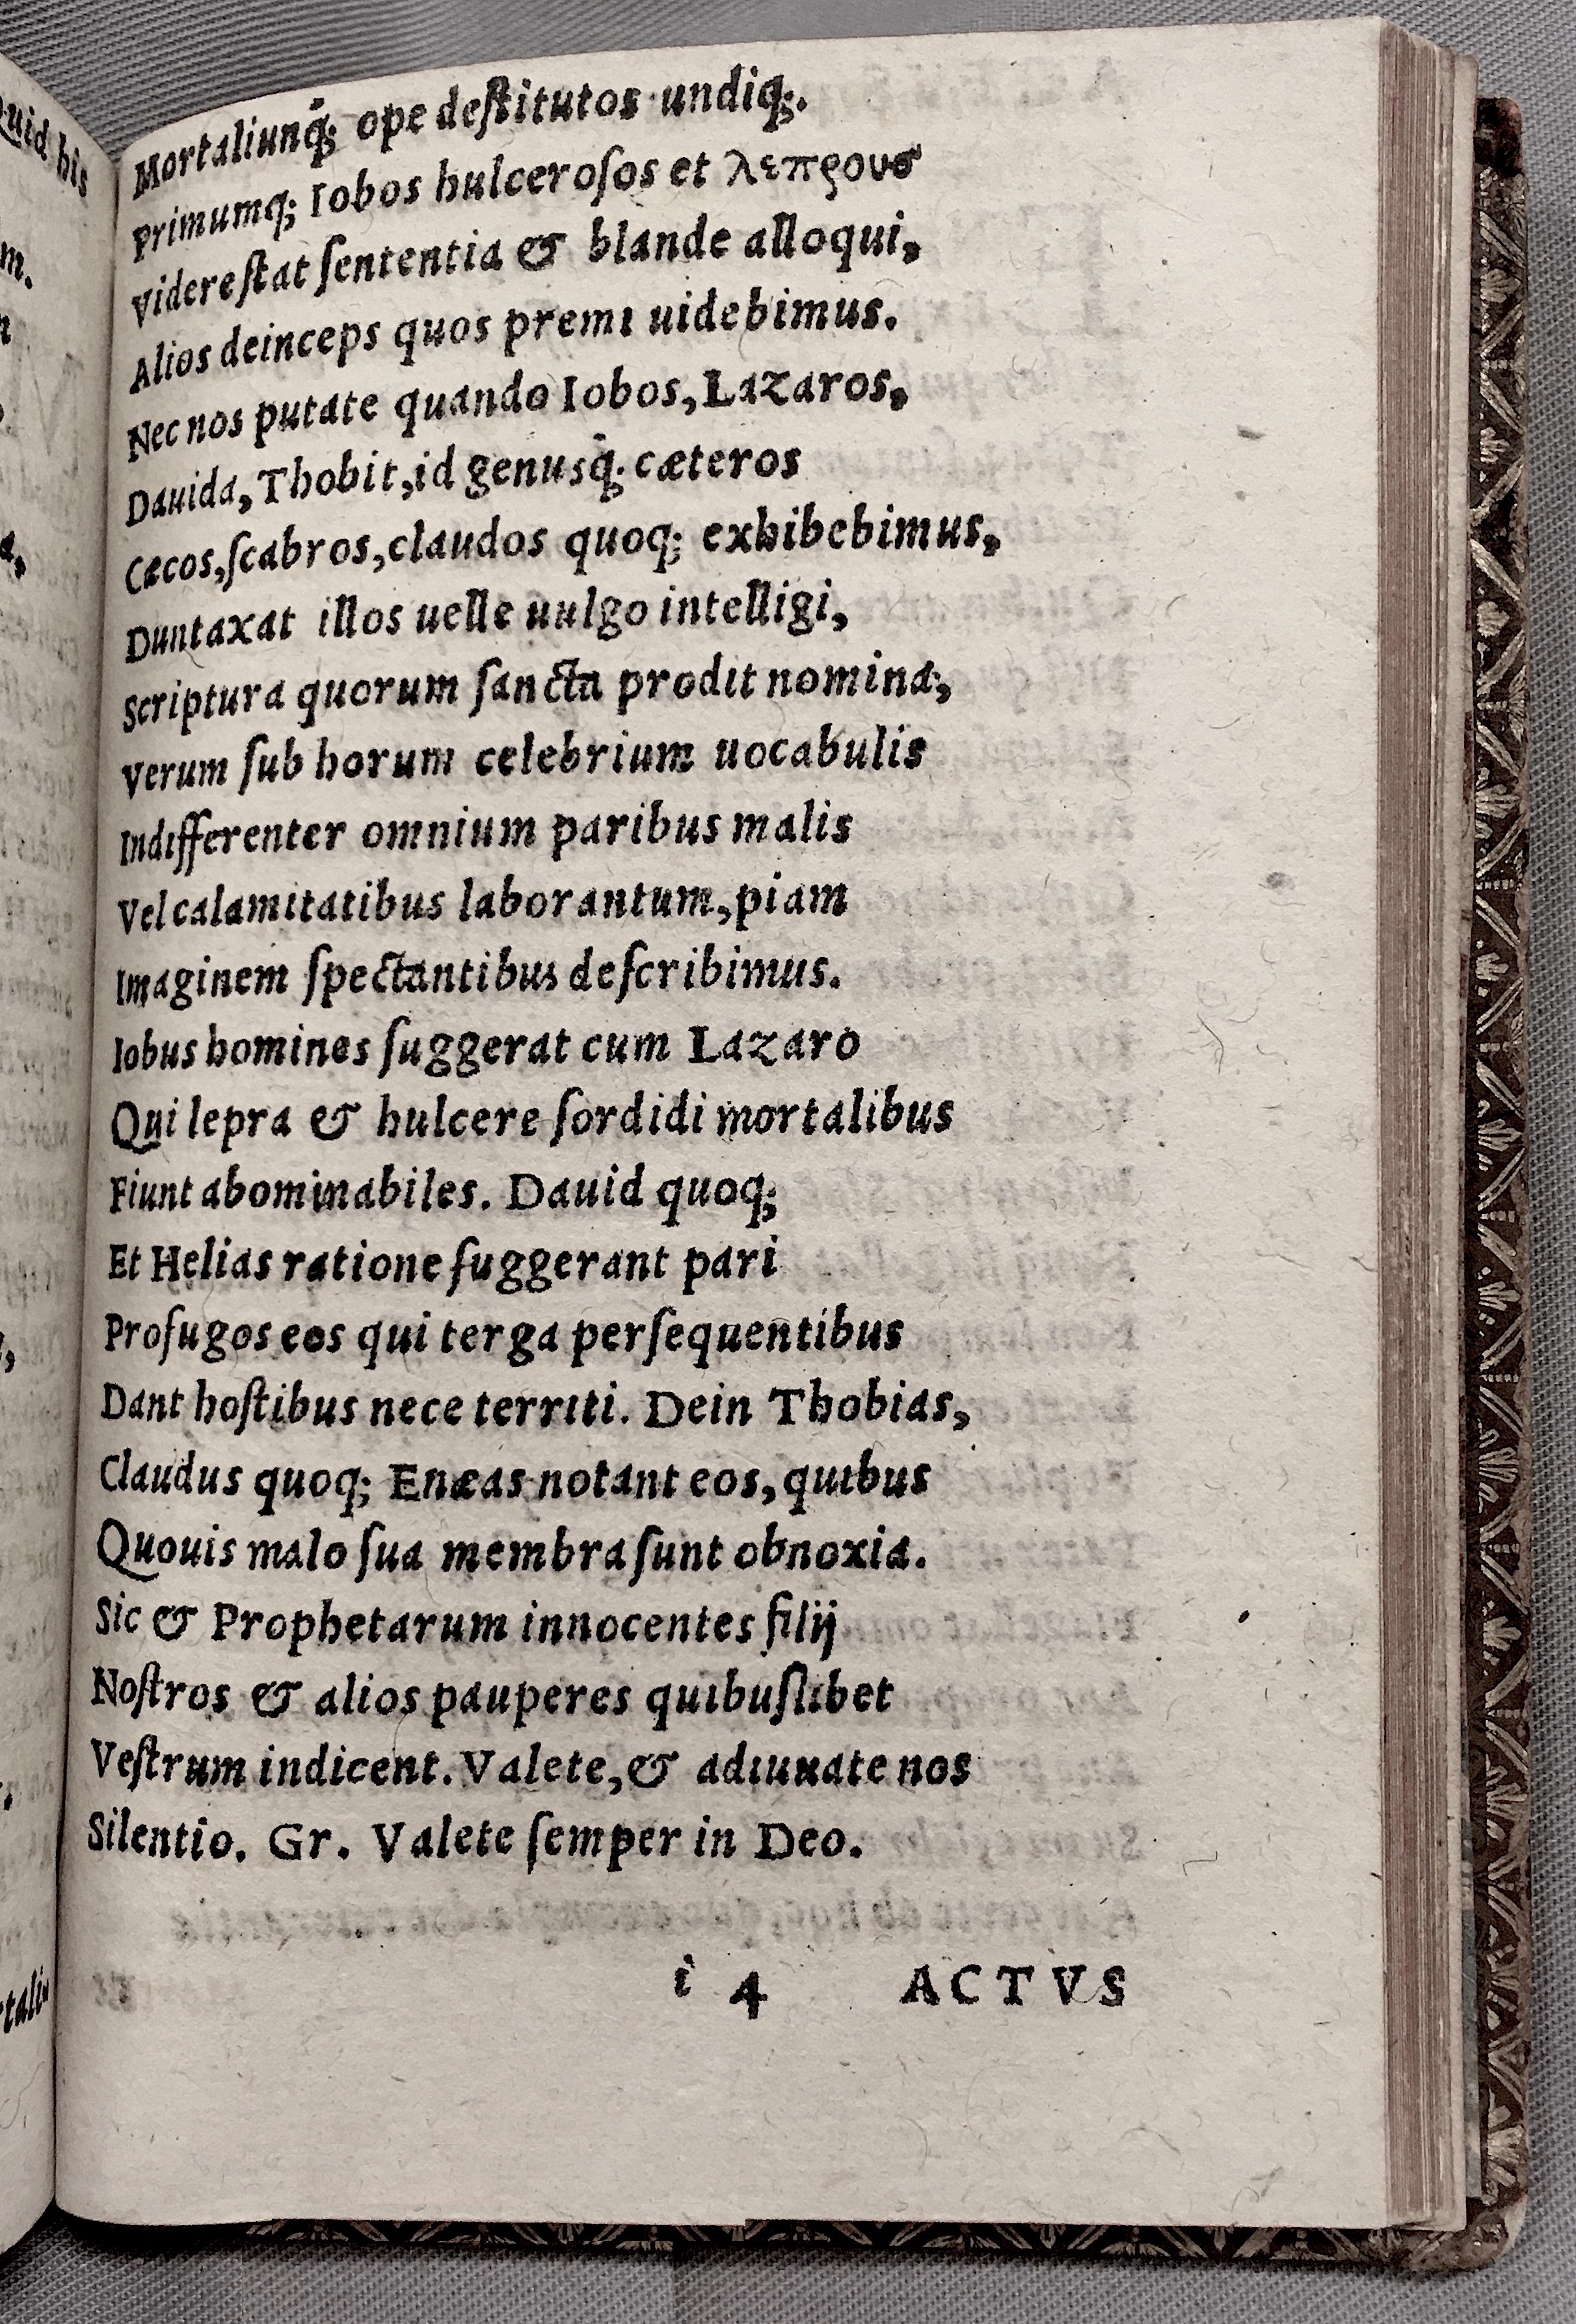 Mortaliunq́; ope deſtitutos undiq;.
Primumq; Iobos hulceroſos et λεπρους
Videre ſtat ſententia & blande alloqui,
Alios deinceps quos premi uidebimus.
Nec nos putate quando Iobos, Lazaros,
Dauida, Thobit, id genusq́; cæteros
Cæcos, ſcabros, claudos quoq; exhibebimus,
Duntaxat illos uelle uulgo intelligi,
Scriptura quorum ſancta prodit nomina;,
Verum ſub horum celebrium uocabulis
Indifferenter omnium paribus malis
Vel calamitatibus laborantum, piam
Imaginem ſpectantibus deſcribimus.
Iobus homines ſuggerat cum Lazaro
Qui lepra & hulcere ſordidi mortalibus
Fiunt abominabiles. Dauid quoq;
Et Helias ratione ſuggerant pari
Profugos eos qui terga perſequentibus
Dant hoſtibus nece territi. Dein Thobias,
Claudus quoq; Enæas notant eos, quibus
Quouis malo ſua membra ſunt obnoxia.
Sic & Prophetarum innocentes filij
Noſtros & alios pauperes quibuſlibet
Veſtrum indicent. Valete, & adiuuate nos
Silentio. Gr. Valete ſemper in Deo.
i 4 ACTVS